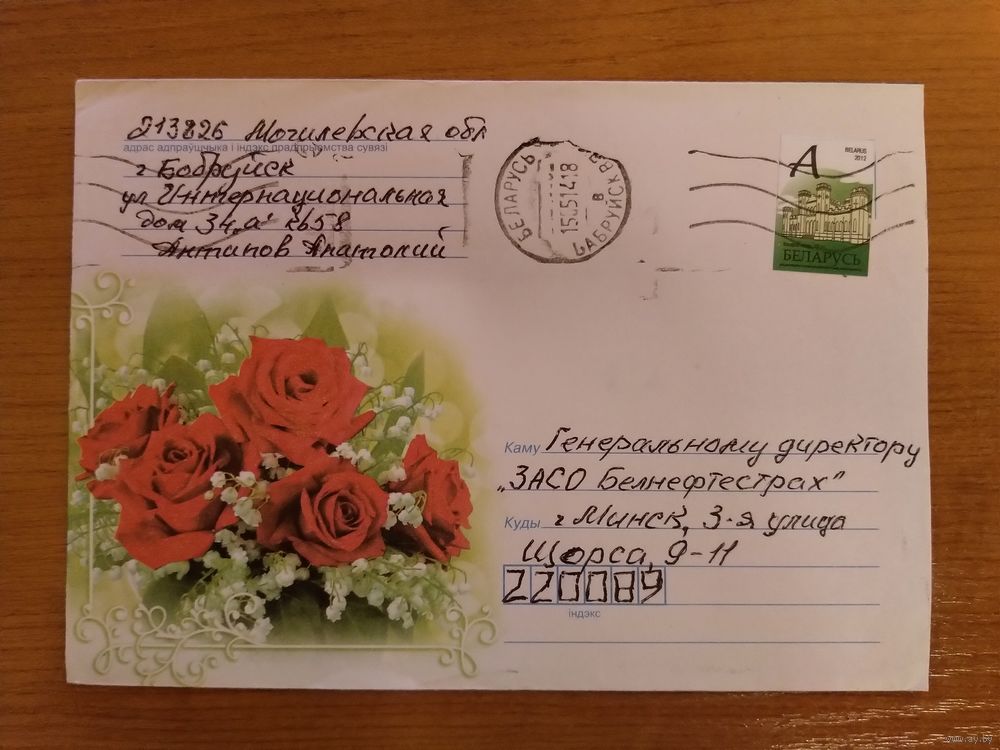 213826 Могилевская обл
адрас адпраўшчыка і індэкс прадпрыемства сувязі
г Бобруйск
ул Интернациональная
дом 34,а" кв58
Антипов Анатолий
БЕЛАРУСЬ
БАБРУЙСК
A
BELARUS
2012
БЕЛАРУСЬ
Каму Генеральному директору
„ЗАСО Белнефтестрах"
Куды г Минск, 3-я улица
Щорса, 9-11
220089
індэкс
www.ay.by